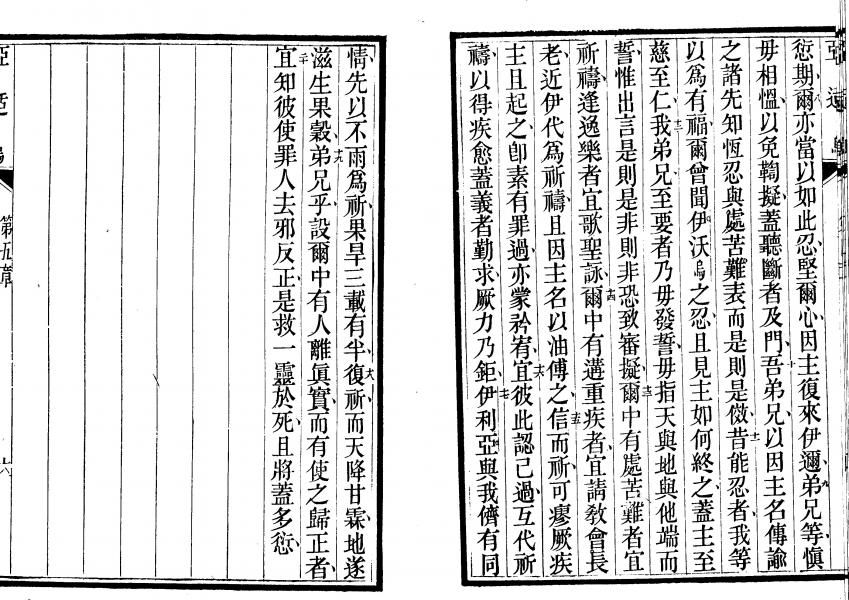 愆期爾亦當以如此忍堅爾心因主復來伊邇弟兄等慎
毋相慍以免鞫擬蓋聽斷者及門吾弟兄以因主名傳諭
之諸先知恆忍與處苦難表而是則是傚昔能忍者我等
以為有福爾曾聞伊沃烏之忍且見主如何終之蓋主至
慈至仁我弟兄至要者乃毋發誓毋指天與地與他端而
誓惟出言是則是非則非恐致審擬爾中有處苦難者宜
祈禱逢逸樂者宜歌聖詠爾中有遘重疾者宜請教會長
老近伊代為祈禱且因主名以油傅之信而祈可瘳厥疾
主且起之卽素有罪過亦蒙矜宥宜彼此認己過互代祈
禱以得疾愈蓋義者勤求厥力乃鉅伊利亞與我儕有同
情先以不雨為祈果旱三載有半復祈而天降甘霖地遂
滋生果穀弟兄乎設爾中有人離眞實而有使之歸正者
宜知彼使罪人去邪反正是救一靈於死且將蓋多愆
第五章
六